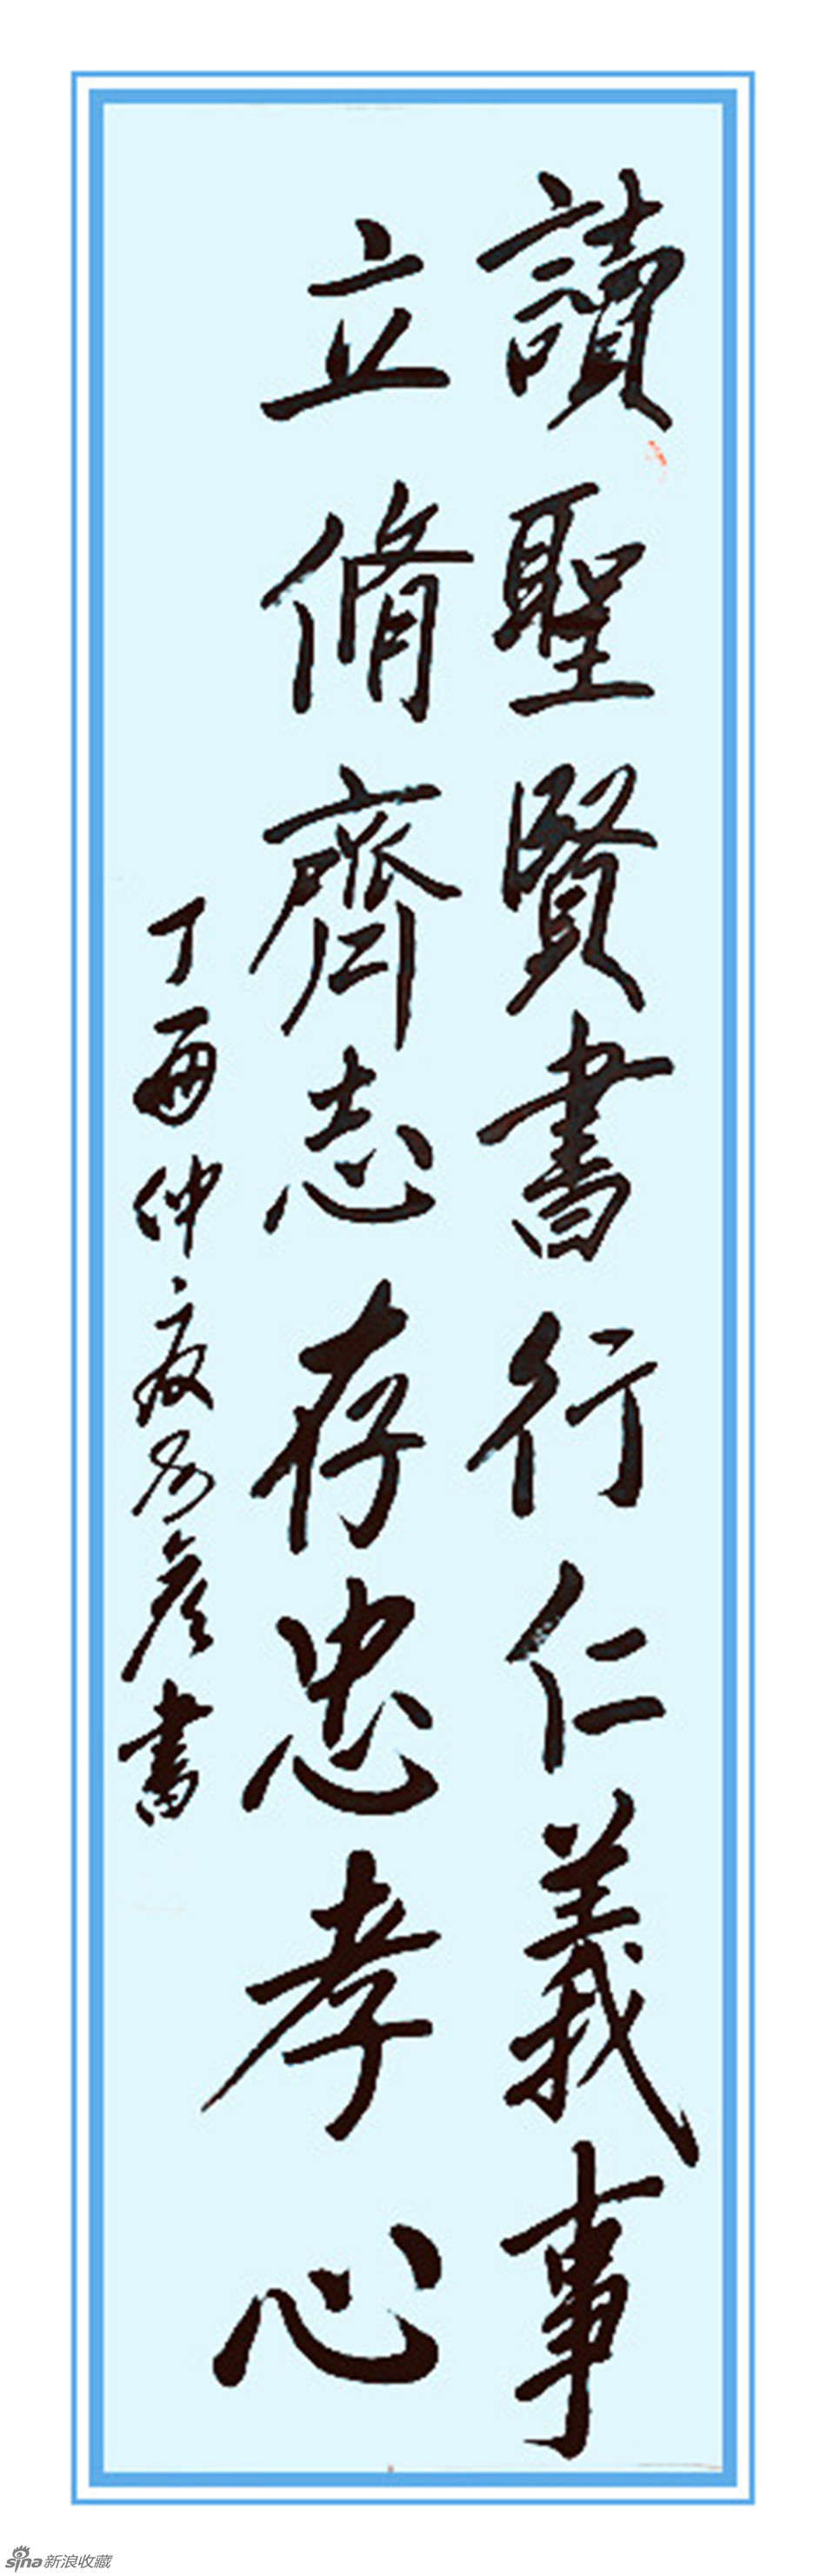 讀聖賢書行仁義事
立脩齊志存忠孝心
丁酉仲夏彦書
sina新浪收藏